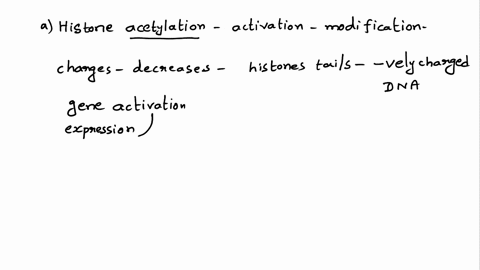 a) Histone acetylation - activation - modification-
charges - decreases - histones tails - -vely charged
DNA
gene activation
expression